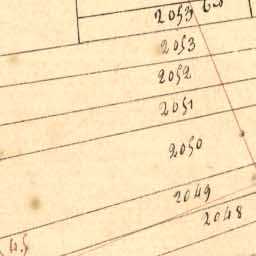 2053
2053
2052
2051
2050
2049
2048
45